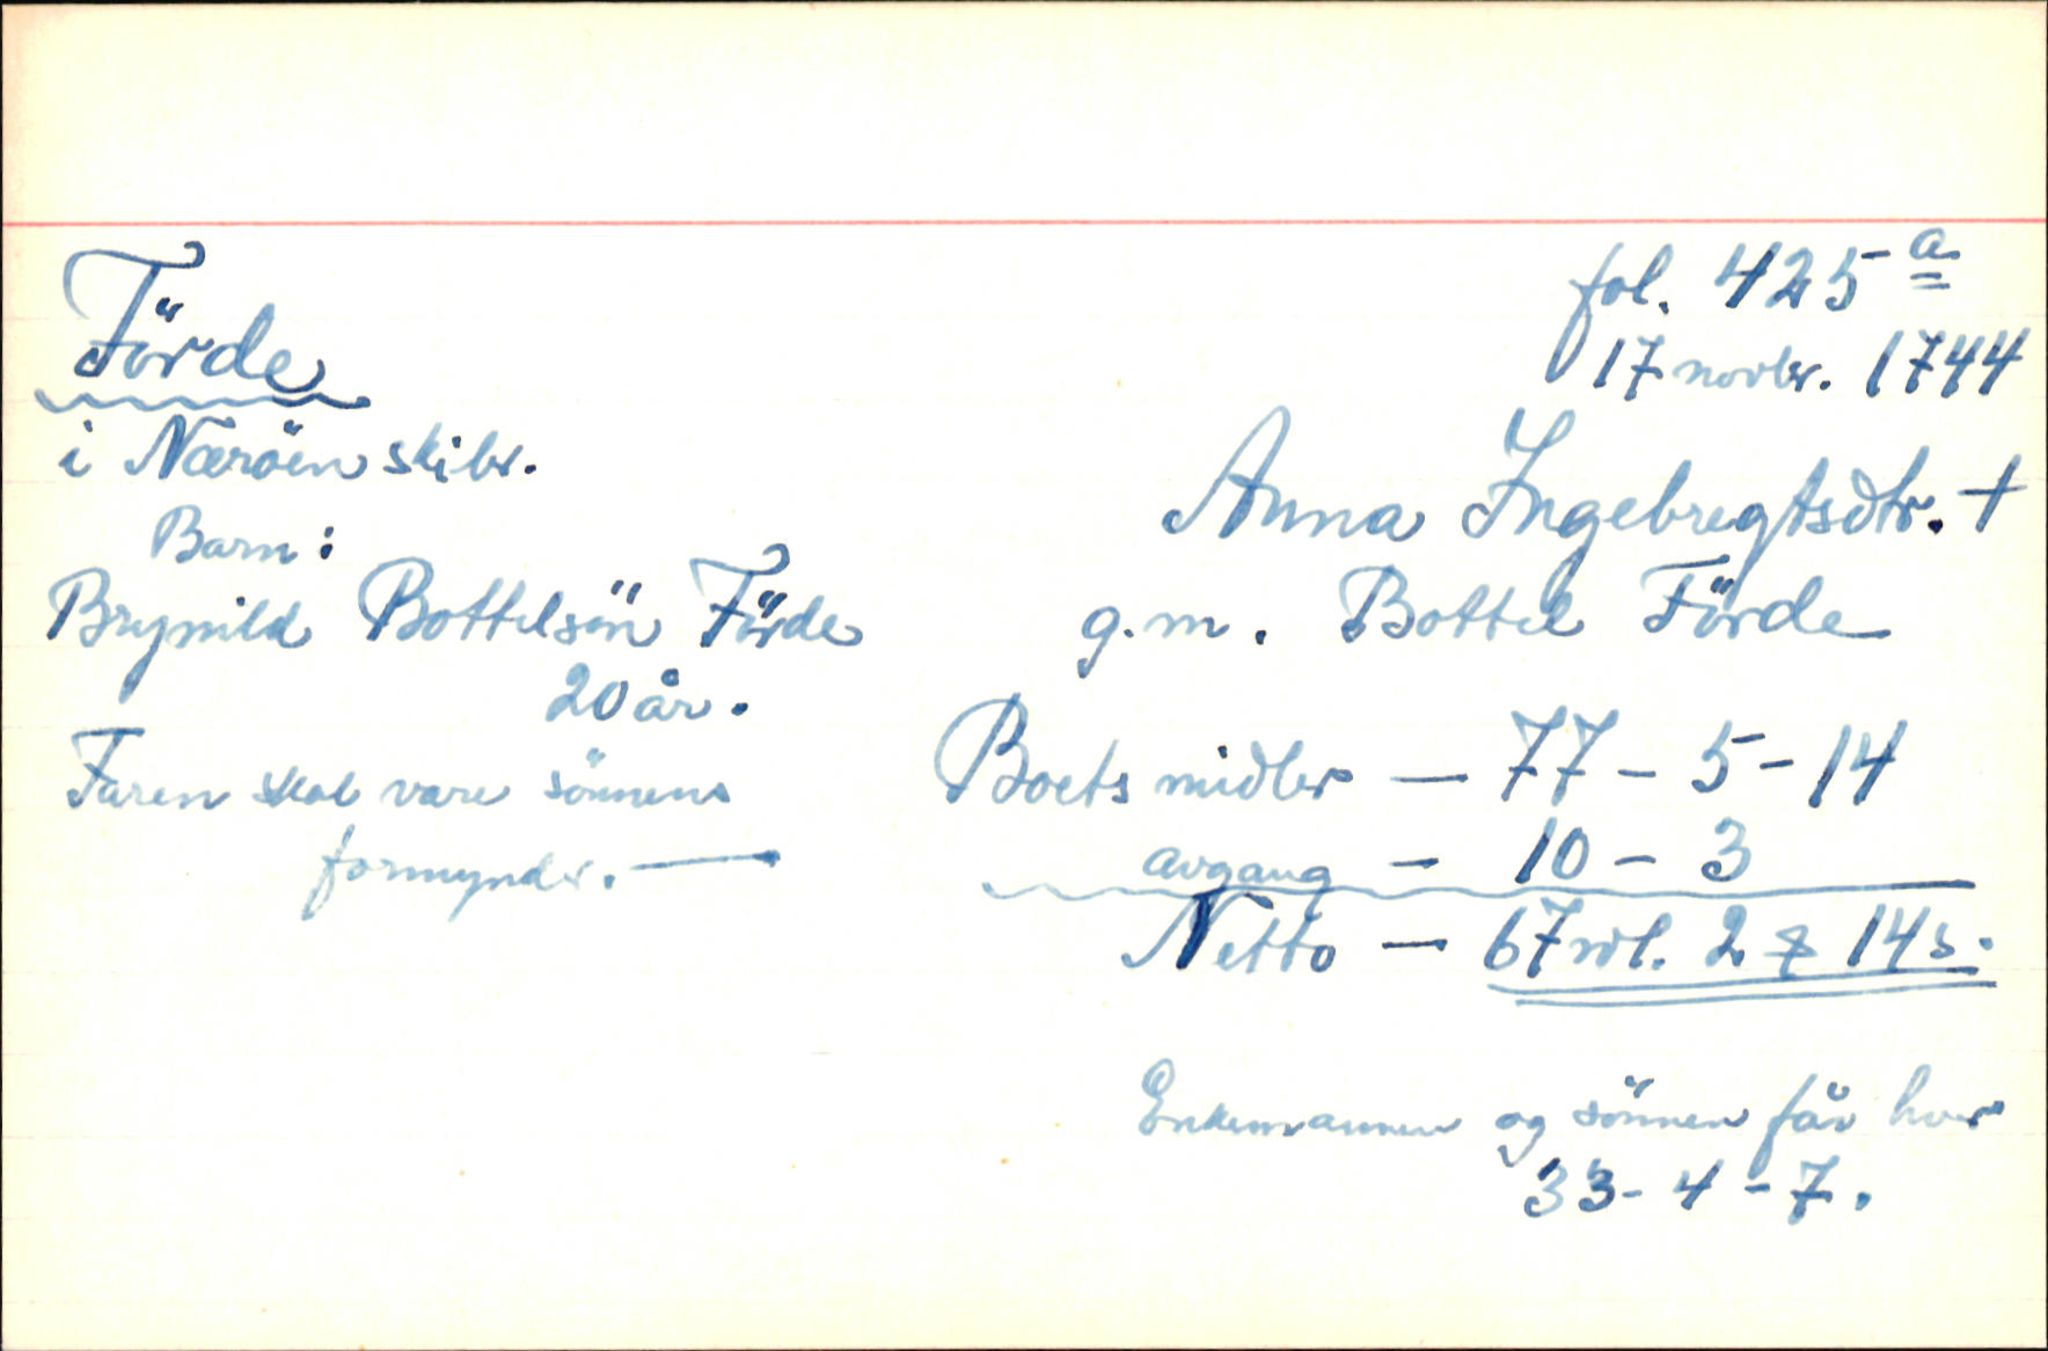 Förde
i Næröen skibr.
Barn:
Brynild Bottelsön Förde
20 år.
Faren skal være sönnens
formynder.
fol. 425 a
17 novbr. 1744
Anna Ingebregtsdtr. †
g.m. Bottel Förde
Boets midler — 77 - 5 - 14
avgang — 10 - 3
Netto — 67 rdl. 2 14 s.
Enkemannen og sönnen får hver
33 - 4 - 7.